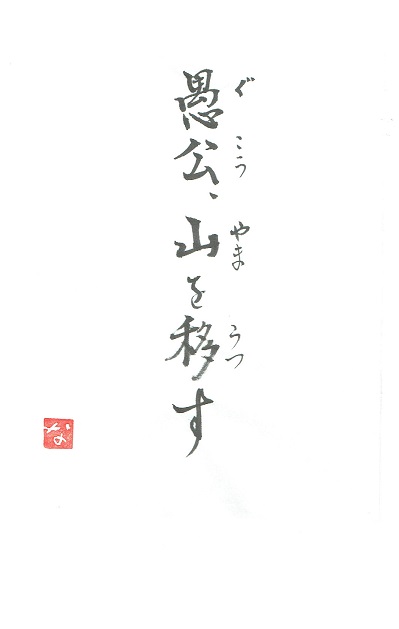 愚公、山を移す
ぐこう やま うつ
な